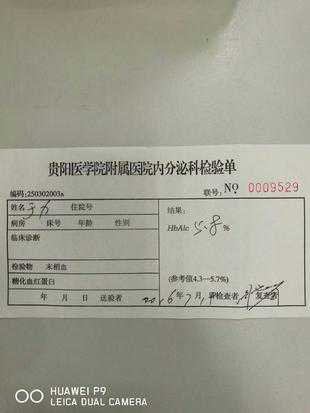 贵阳医学院附属医院内分泌科检验单
编码:250302003a 联号: NO 0009529
姓名 于 住院号
病房 床号 年龄 性别
临床诊断
检验物 末梢血
糖化血红蛋白
年 月 日 送验者
结果:
HbAlc 5.8 %
(参考值4.3—5.7%)
2016年7月 检查者 复查者
HUAWEI P9
LEICA DUAL CAMERA